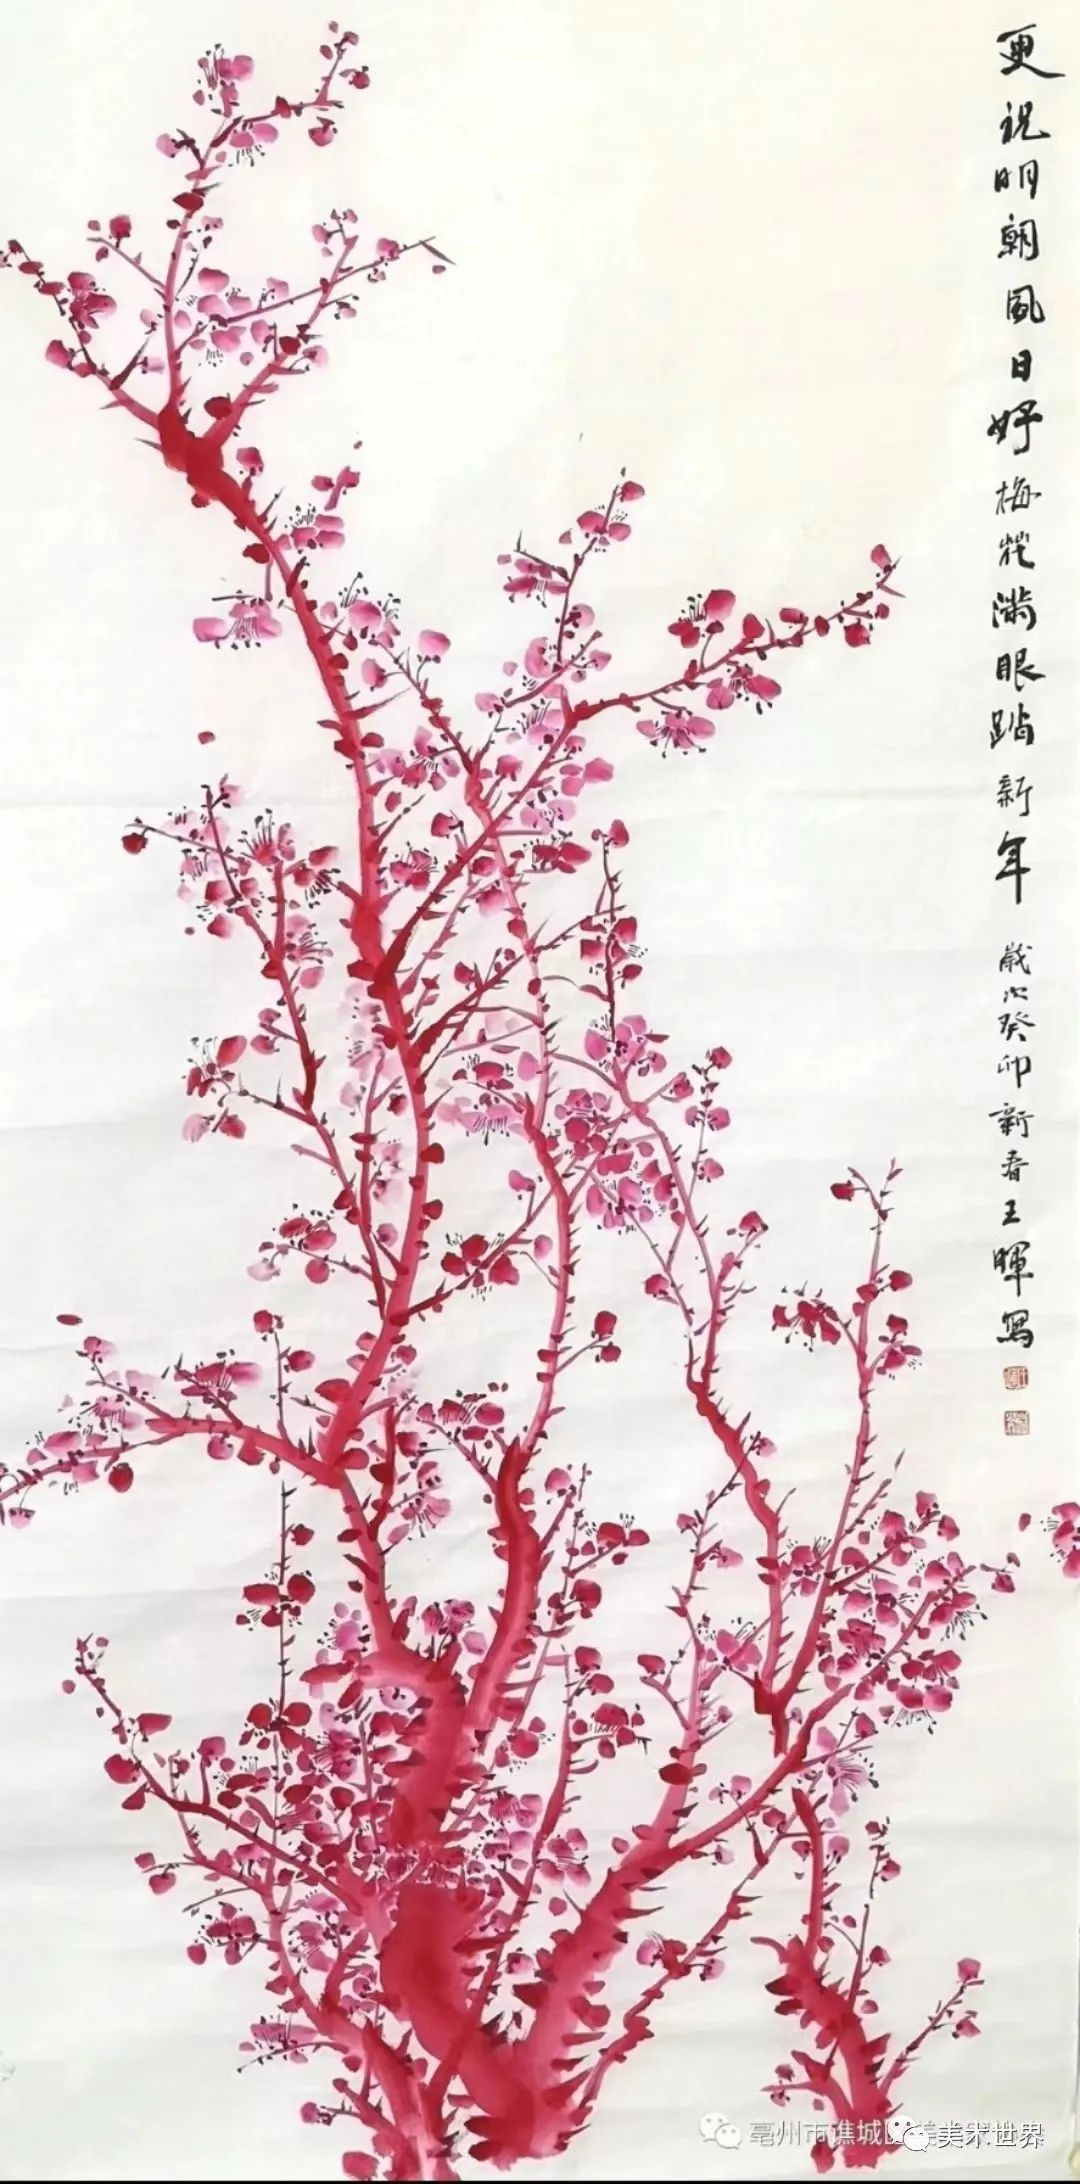 更祝明朝風日好梅花滿眼踏新年 歲次癸卯新春王暉寫
亳州市谯城区美
美术世界